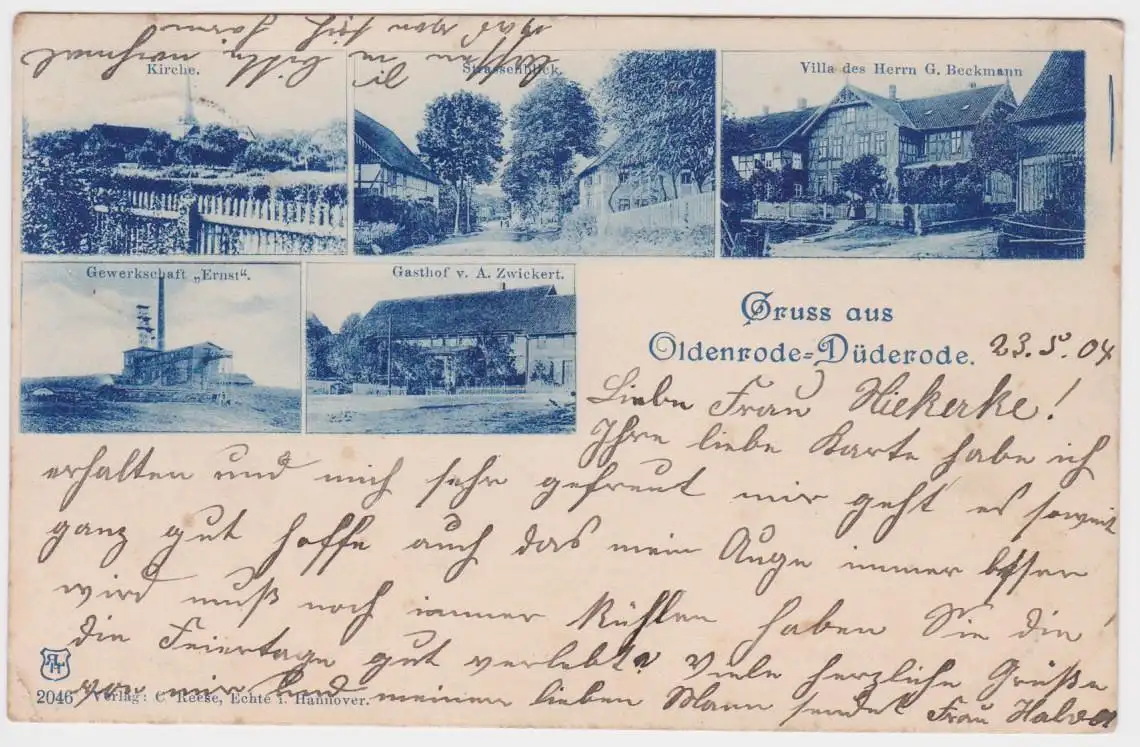 Kirche.
Strassenblick.
Villa des Herrn G. Beckmann
Gewerkschaft „Ernst“.
Gasthof v. A. Zwickert.
Gruss aus
Oldenrode=Düderode.
23.5.04
Liebe Frau Hiekerke!
Ihre liebe Karte habe ich
erhalten und mich sehr gefreut mir geht es soweit
ganz gut hoffe auch das mein Auge immer besser
wird muß noch immer kühlen haben Sie die
die Feiertage gut verlebt? Viele herzliche Grüße
von mir und meinen lieben Mann sendet Frau
2046 Verlag: C. Reese, Echte i. Hannover.